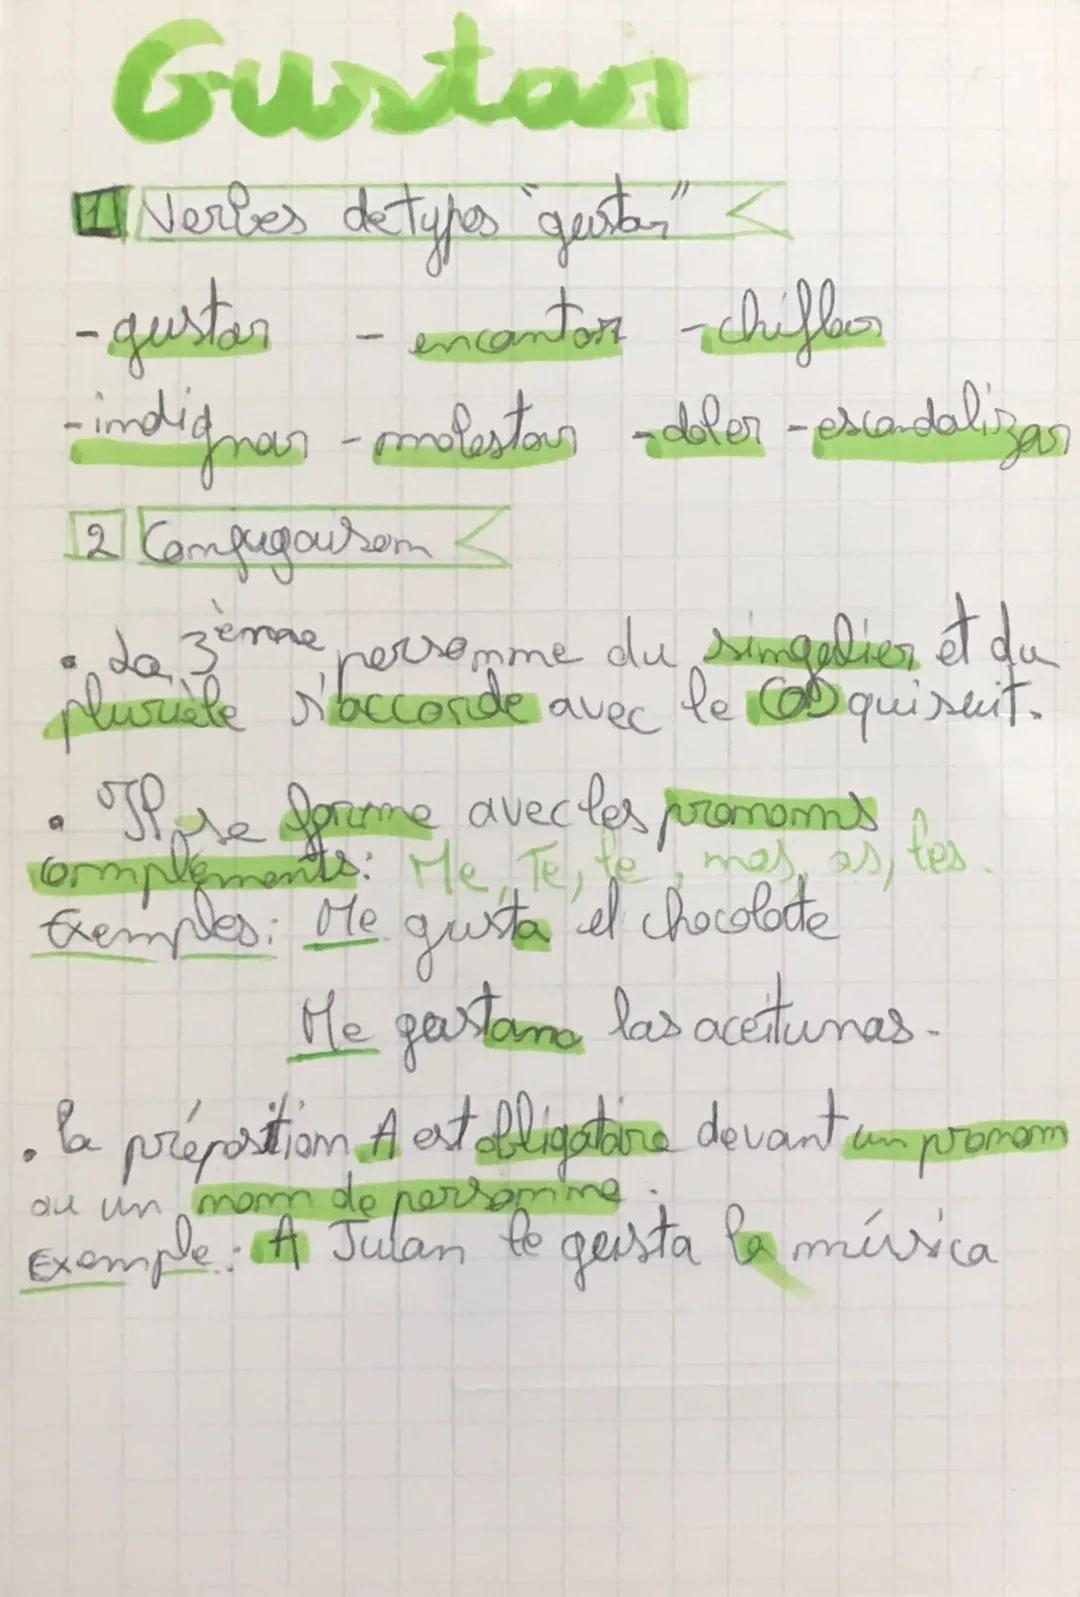 Gustar
1 Verbes de types "gustar"
- gustar - encantar - chiflar
- indignar - molestar - doler - escandalizar
2 Conjugaison
• La 3ème personne du singulier et du
plurièle s'accorde avec le COD qui suit.
• Il se forme avec les pronoms
compléments: Me, Te, le, nos, os, les.
Exemples: Me gusta el chocolate
Me gustan las aceitunas.
• la préposition A est obligatoire devant un pronom
ou un nom de personne.
Exemple: A Julan le gusta la música